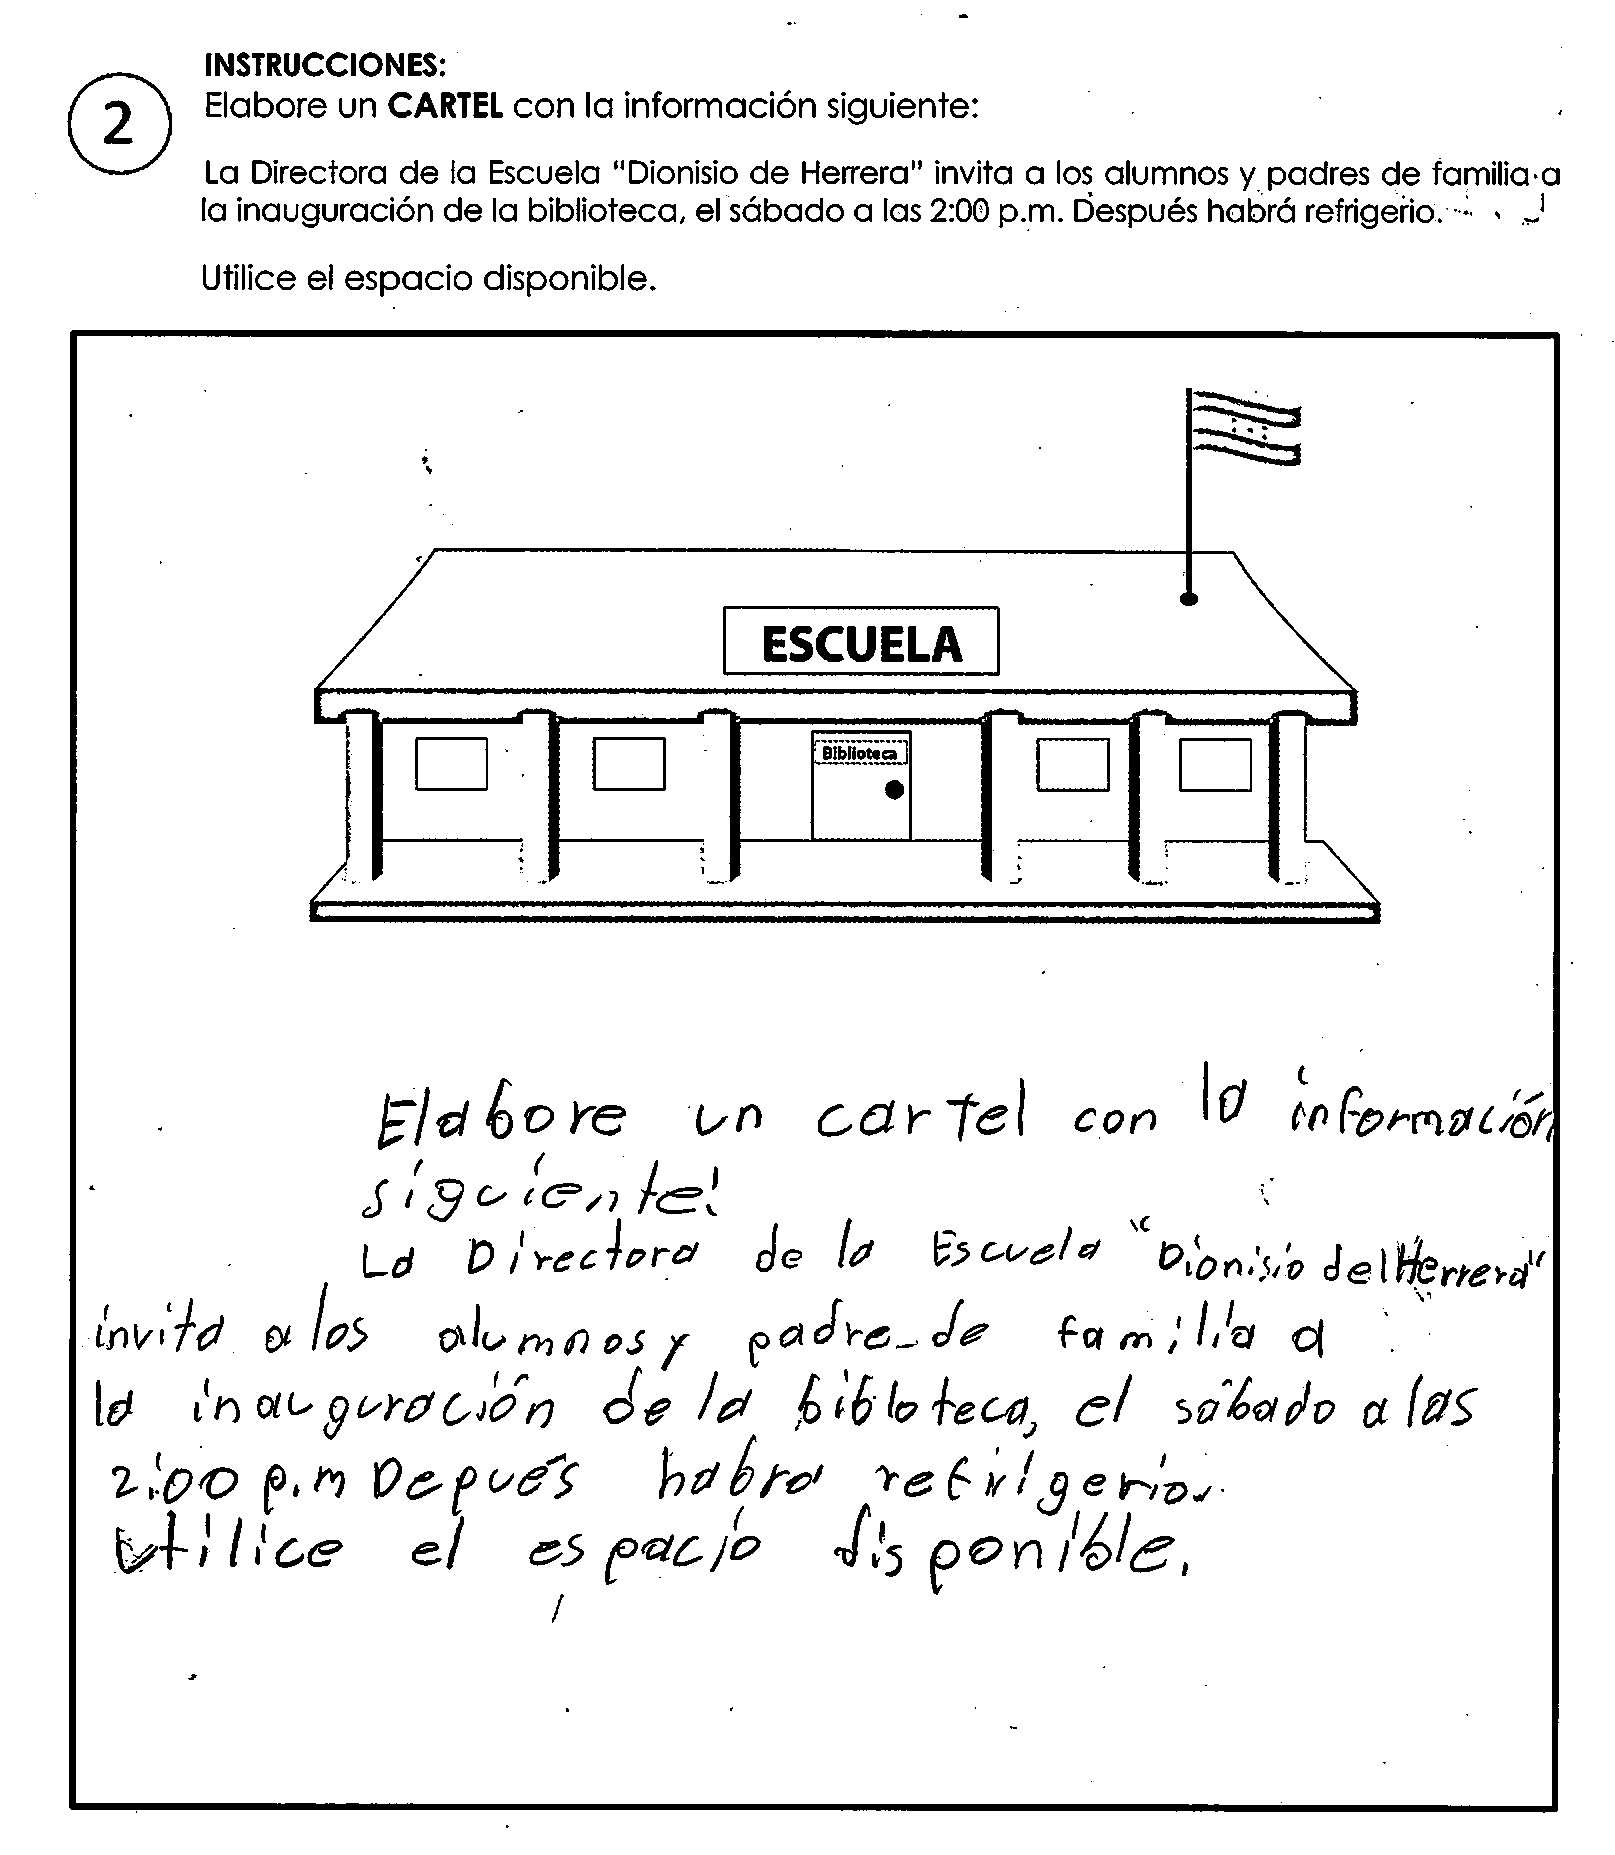 INSTRUCCIONES:
2
Elabore un CARTEL con la información siguiente:
La Directora de la Escuela "Dionisio de Herrera" invita a los alumnos y padres de familia a
la inauguración de la biblioteca, el sábado a las 2:00 p.m. Después habrá refrigerio.
Utilice el espacio disponible.
ESCUELA
Biblioteca
Elabore un cartel con la información
siguiente:
La Directora de la Escuela "Dionisio del Herrera"
invita a los alumnos y padre de familia a
la inauguración de la bibloteca, el sábado a las
2:00 p.m Depués habra refirigerio.
Utilice el espacio disponible.